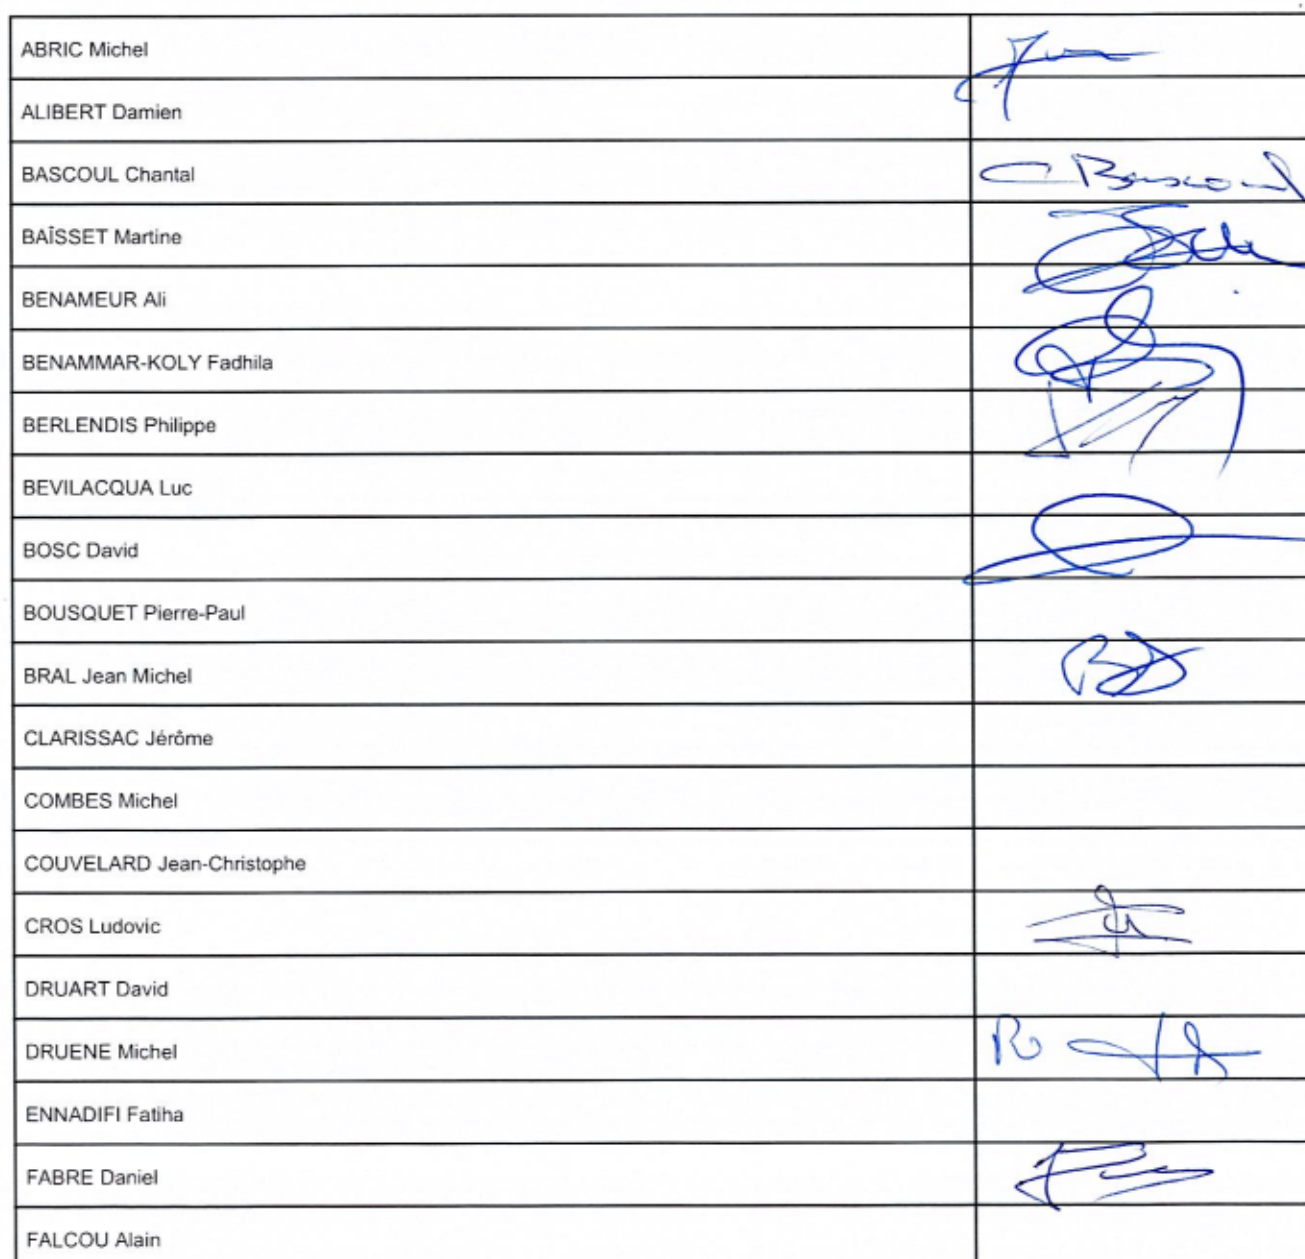 ABRIC Michel
ALIBERT Damien
BASCOUL Chantal C Bascoul
BAÏSSET Martine
BENAMEUR Ali
BENAMMAR-KOLY Fadhila
BERLENDIS Philippe
BEVILACQUA Luc
BOSC David
BOUSQUET Pierre-Paul
BRAL Jean Michel
CLARISSAC Jérôme
COMBES Michel
COUVELARD Jean-Christophe
CROS Ludovic
DRUART David
DRUENE Michel
ENNADIFI Fatiha
FABRE Daniel
FALCOU Alain